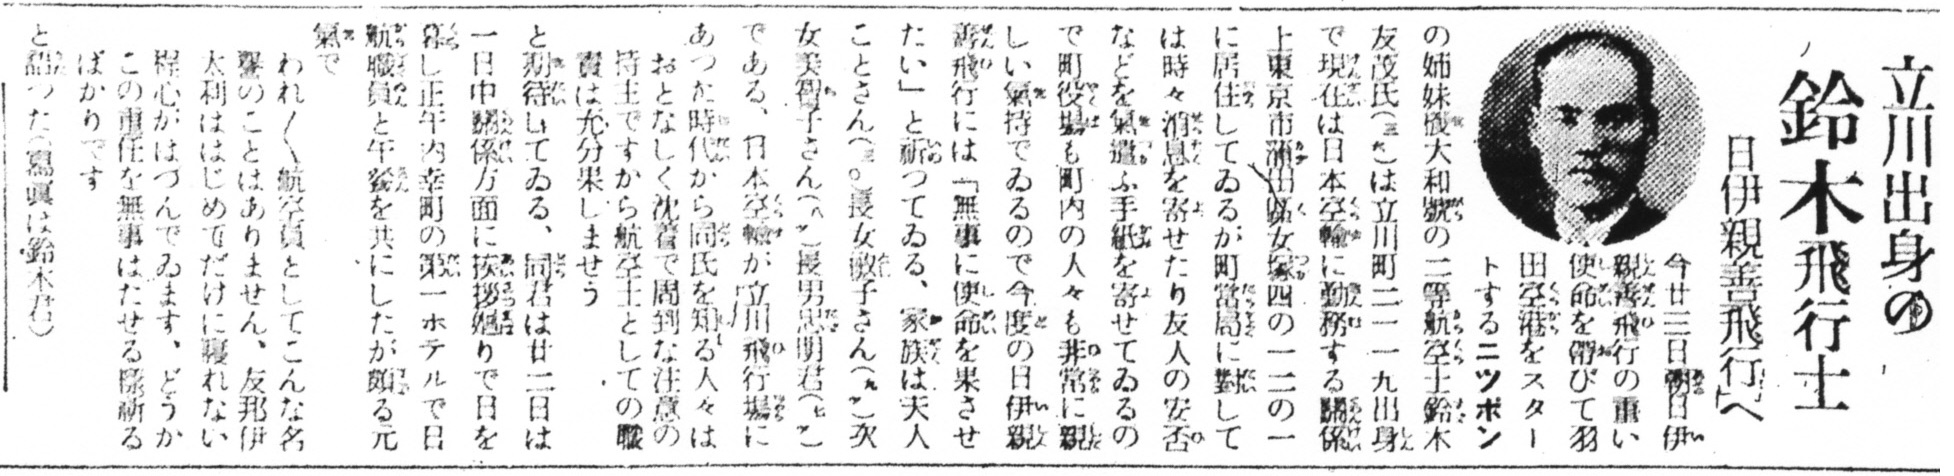 立川出身の
鈴木飛行士
日伊親善飛行へ
今廿三日朝日伊
親善飛行の重い
使命を帶びて羽
田空港をスター
トするニツポン
の姉妹機大和號の二等航空士鈴木
友茂氏(三九)は立川町二一一九出身
で現在は日本空輸に勤務する關係
上東京市蒲田區女塚四の一二の一
に居住してゐるが町當局に對して
は時々消息を寄せたり友人の安否
などを氣遣ふ手紙を寄せてゐるの
で町役場も町内の人々も非常に親
しい氣持でゐるので今度の日伊親
善飛行には「無事に使命を果させ
たい」と祈つてゐる、家族は夫人
ことさん(三〇)長女敏子さん(九ツ)次
女美智子さん(八ツ)長男忠明君(七ツ)
である、日本空輸が立川飛行場に
あつた時代から同氏を知る人々は
おとなしく沈着で周到な注意の
持主ですから航空士としての職
責は充分果しませう
と期待してゐる、同君は廿二日は
一日中關係方面に挨拶廻りで日を
暮し正午内幸町の第一ホテルで日
航職員と午餐を共にしたが頗る元
氣で
われ〳〵航空員としてこんな名
譽のことはありません、友邦伊
太利ははじめてだけに寢れない
程心がはづんでゐます、どうか
この重任を無事はたせる樣祈る
ばかりです
と語つた(寫眞は鈴木君)